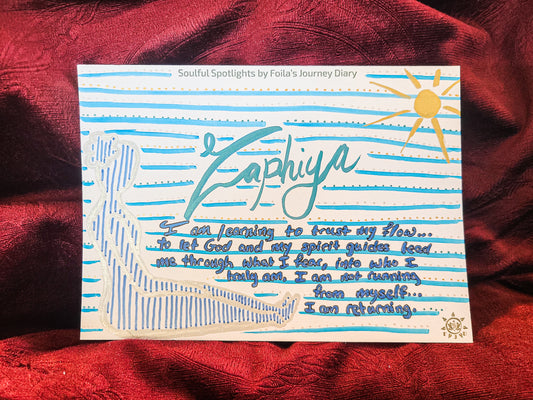 Soulful Spotlights by Foila's Journey Diary
Zaphiya
I am learning to trust my flow...
to let God and my spirit guides lead
me through what I fear, into who I
truly am. I am not running
from myself...
I am returning.